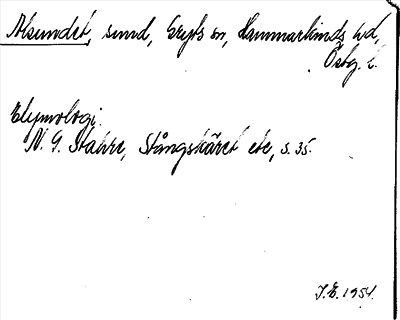 Alsundet, sund, Gryts sn, Hammarkinds hd,
Östg. l.
Etymologi:
N. G. Stahre, Stångskäret etc, s. 35.
J.E. 1954.